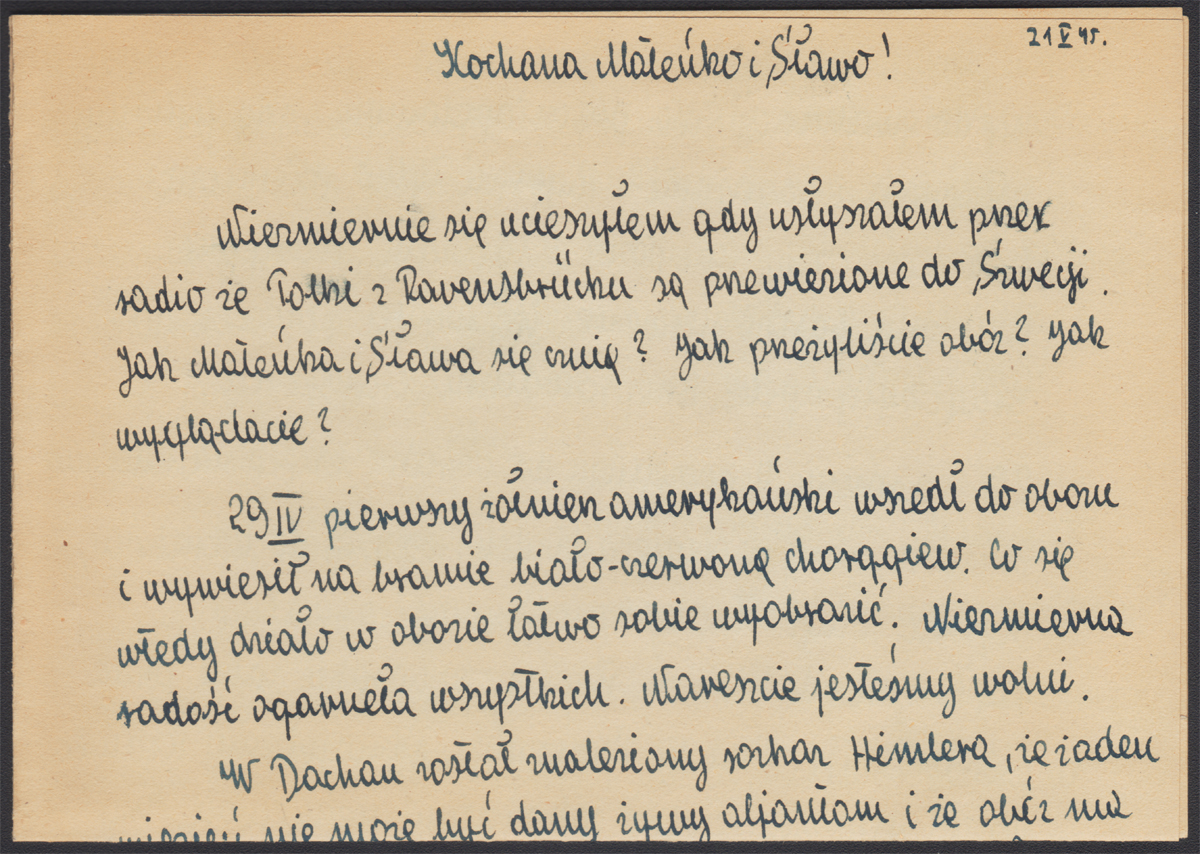 21 V 45.
Kochana Maleńko i Sławo!
Niezmiernie się ucieszyłem gdy usłyszałem przez
radio że Polki z Ravensbrücku są przewiezione do Szwecji.
Jak Maleńka i Sława się czują? Jak przeżyliście obóz? Jak
wyglądacie?
29 IV pierwszy żołnierz amerykański wszedł do obozu
i wywiesił na bramie biało-czerwoną chorągiew. Co się
wtedy działo w obozie łatwo sobie wyobrazić. Niezmierna
radość ogarnęła wszystkich. Nareszcie jesteśmy wolni.
W Dachau został znaleziony rozkaz Himlera, że żaden
więzień nie może być dany żywy aljantom i że obóz ma